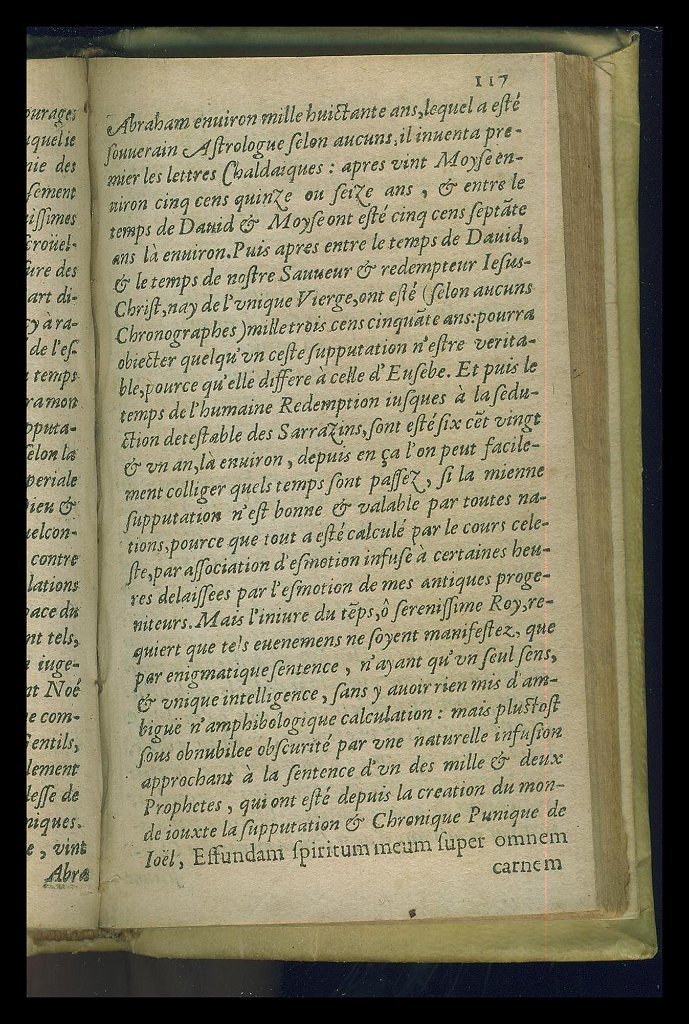 ourages
uquel ie
nie des
sement
issimes
croüel-
ure des
art di-
cy à ra-
de l'es-
temps
ramon
pputa-
selon la
periale
Dieu &
uelcon-
contre
lations
pace du
nt tels,
iuge-
nt Noé
e com-
Gentils,
lement
lesse de
niques.
e, vint
Abra
117
Abraham enuiron mille huictante ans, lequel a esté
souuerain Astrologue selon aucuns, il inuenta pre-
mier les lettres Chaldaiques : apres vint Moyse en-
uiron cinq cens quinze ou seize ans, & entre le
temps de Dauid & Moyse ont esté cinq cens septãte
ans là enuiron. Puis apres entre le temps de Dauid,
& le temps de nostre Sauueur & redempteur Iesus-
Christ, nay de l'vnique Vierge, ont esté (selon aucuns
Chronographes) mille trois cens cinquãte ans: pourra
obiecter quelqu'vn ceste supputation n'estre verita-
ble, pource qu'elle differe à celle d'Eusebe. Et puis le
temps de l'humaine Redemption iusques à la sedu-
ction detestable des Sarrazins, sont esté six cẽt vingt
& vn an, là enuiron, depuis en ça l'on peut facile-
ment colliger quels temps sont passez, si la mienne
supputation n'est bonne & valable par toutes na-
tions, pource que tout a esté calculé par le cours cele-
ste, par association d'esmotion infuse à certaines heu-
res delaissees par l'esmotion de mes antiques proge-
niteurs. Mais l'iniure du tẽps, ô serenissime Roy, re-
quiert que tels euenemens ne soyent manifestez, que
par enigmatique sentence, n'ayant qu'vn seul sens,
& vnique intelligence, sans y auoir rien mis d'am-
biguë n'amphibologique calculation : mais plustost
sous obnubilee obscurité par vne naturelle infusion
approchant à la sentence d'vn des mille & deux
Prophetes, qui ont esté depuis la creation du mon-
de iouxte la supputation & Chronique Punique de
Ioël, Effundam spiritum meum super omnem
carnem